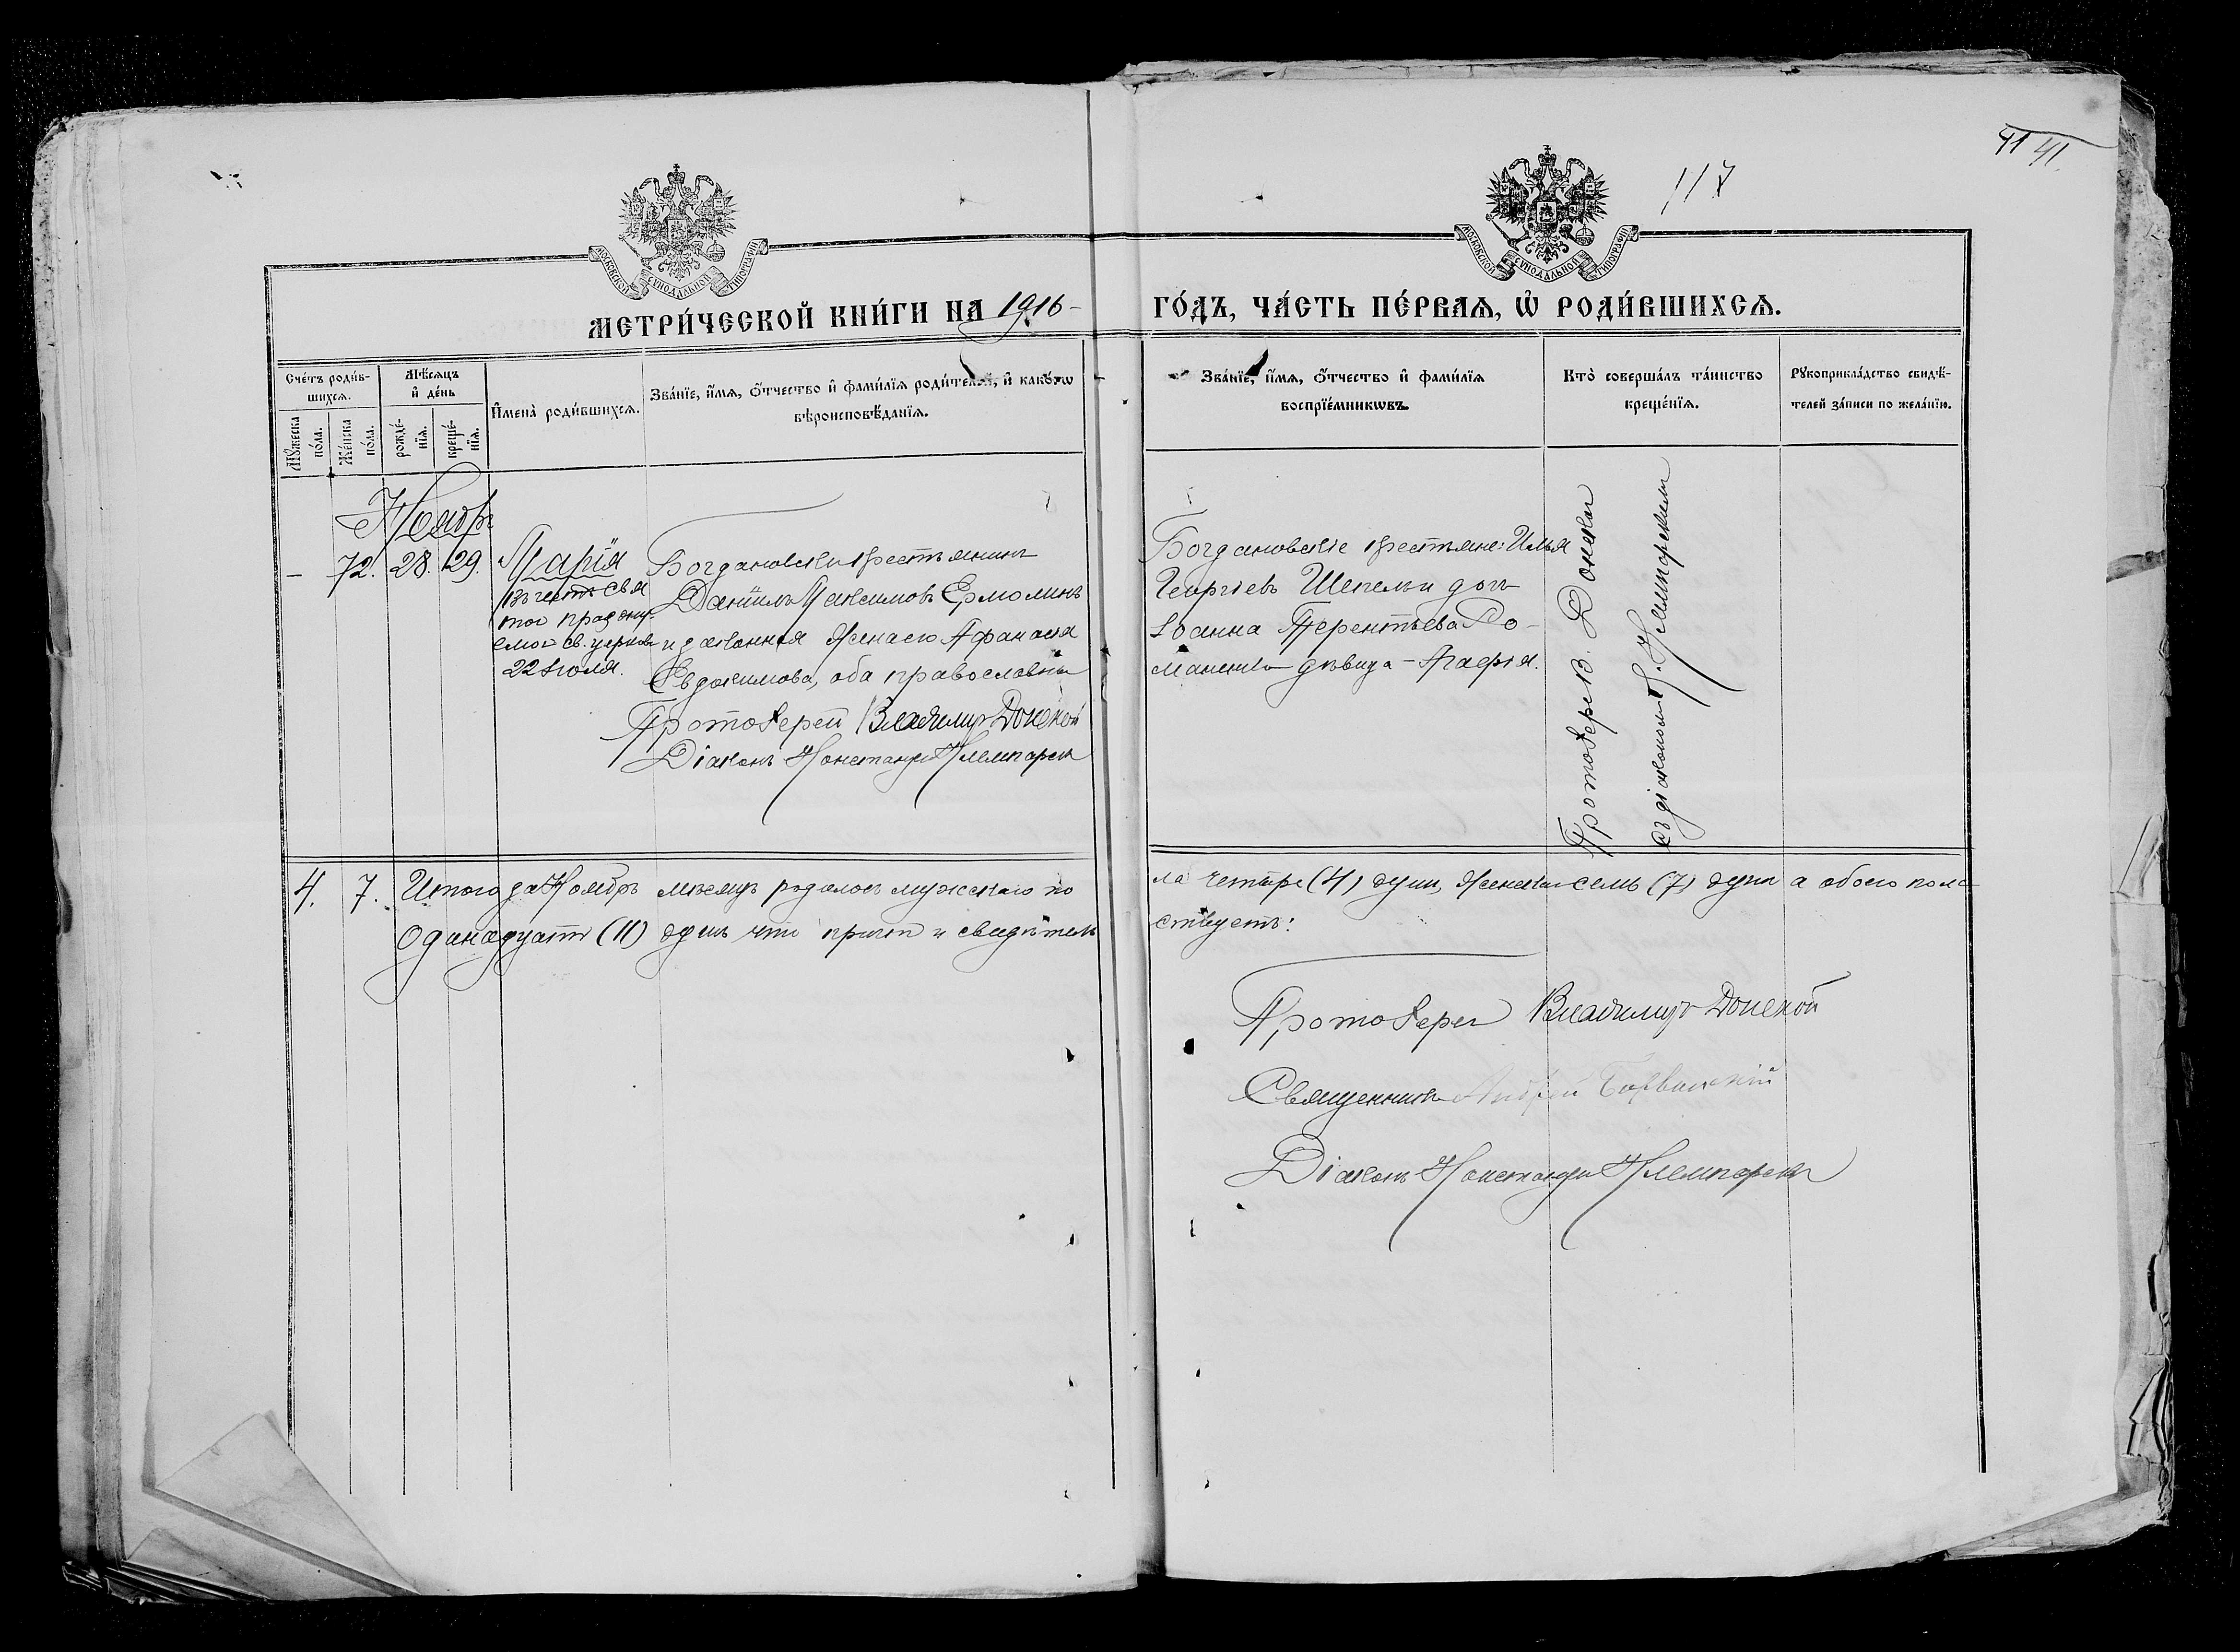 41 41
117
МОСКОВСКОЙ СѴНОДАЛЬНОЙ ТИПОГРАФІИ
МОСКОВСКОЙ СѴНОДАЛЬНОЙ ТИПОГРАФІИ
МЕТРИ́ЧЕСКОЙ КНИ́ГИ НА 1916
ГО́ДЪ, ЧА́СТЬ ПЕ́РВАѦ, Ѡ҆ РОДИ́ВШИХСѦ.
Сче́тъ роди́в-
шихсѧ.
Мꙋ́жеска
по́ла.
Же́нска
по́ла.
Мѣ́сѧцъ
и҆ де́нь
рожде́-
нїѧ.
креще́-
нїѧ.
И҆мена̀ роди́вшихсѧ.
Зва́нїе, и҆́мѧ, ѻ҆́тчество и҆ фами́лїѧ роди́телей, и҆ како́гѡ
вѣроисповѣ́данїѧ.
Зва́нїе, и҆́мѧ, ѻ҆́тчество и҆ фами́лїѧ
воспрїе́мникѡвъ.
Кто̀ соверша́лъ та́инство
креще́нїѧ.
Рꙋкоприкла́дство свидѣ́-
телей за́писи по жела́нїю.
Ноябрь
– 72. 28. 29.
Марія
въ честь свя
той праздну-
емой св. церков
22 Іюля.
Богдановскій крестьянинъ
Даніилъ Максимовъ Ермолинъ
и законная жена его Афанасія
Евдокимова, оба православны
Протоіерей Владимиръ Донской
Діаконъ Константинъ
Богдановскіе крестьяне: Илья
Георгіевъ Шепель и дочь
Іоанна Терентьева Ро-
маненко дѣвица – Агафія.
Протоіерей В. Донской
съ діакономъ К.
4. 7. Итого за Ноябрь мѣсяцъ родилось мужескаго по
ла четыре (4) души, женскаго семь (7) душъ а обоего пола
Одинадцать (11) душъ что причтъ и свидѣтель
ствуетъ:
Протоіерей Владимиръ Донской
Священникъ Андрей
Діаконъ Константинъ